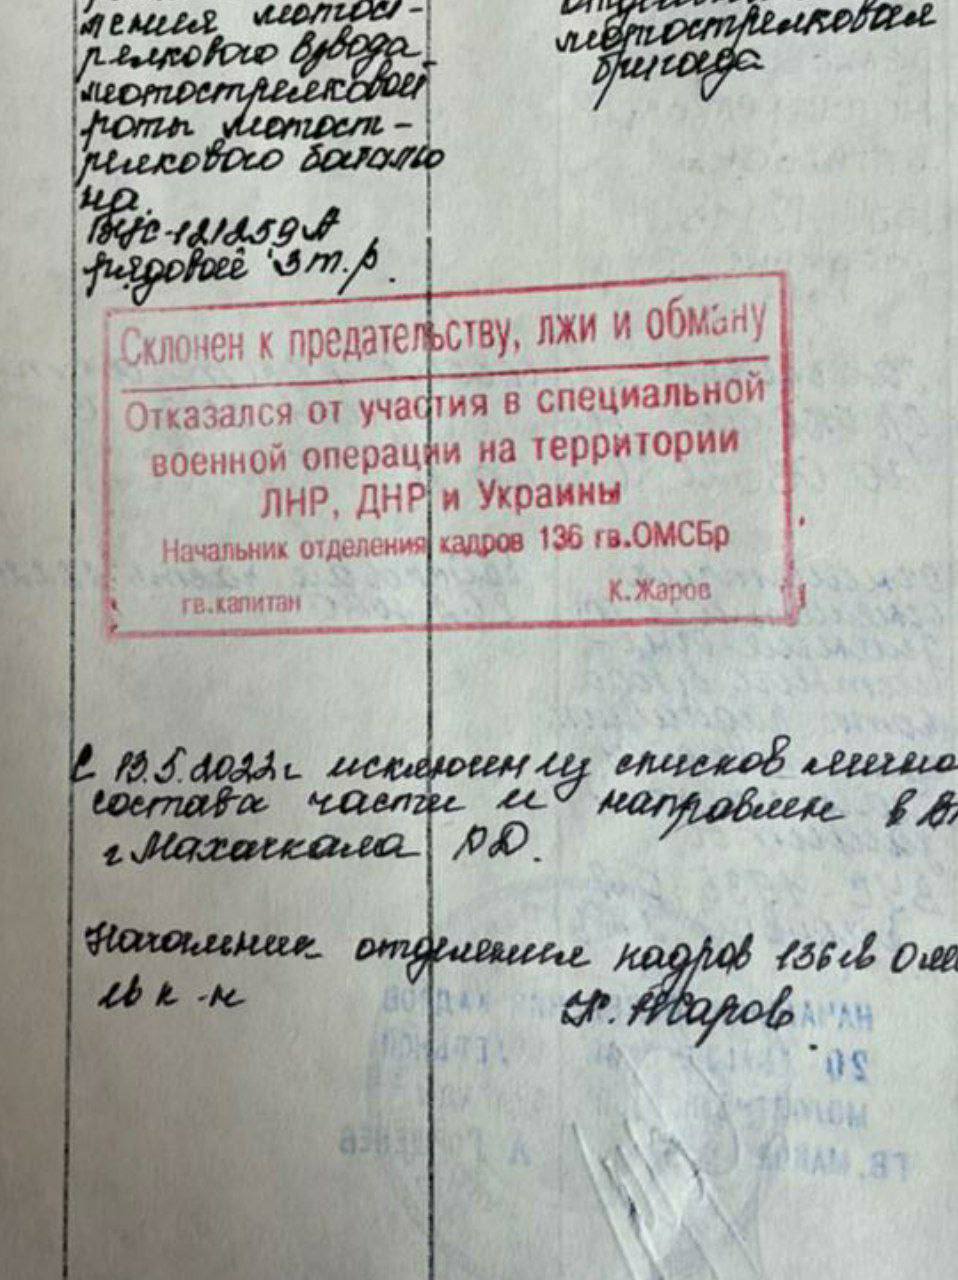 ления мотост-
релкового взвода
мотострелковой
роты мотост-
релкового батальо
на.
ВУС-121259А
рядовой 3 т.р.
мотострелковая
бригада
Склонен к предательству, лжи и обману
Отказался от участия в специальной
военной операции на территории
ЛНР, ДНР и Украины
Начальник отделения кадров 136 гв.ОМСБр
гв.капитан К.Жаров
С 13.5.2022г исключен из списков лично
состава части и направлен в В
г Махачкала РД.
Начальник отделения кадров 136 гв ОМ
гв к-н К. Жаров